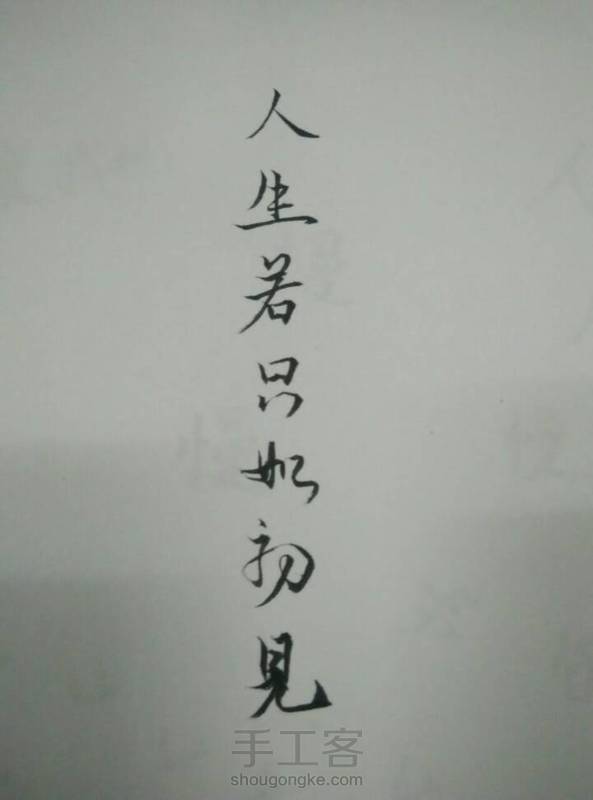 人生若只如初見
手工客
shougongke.com